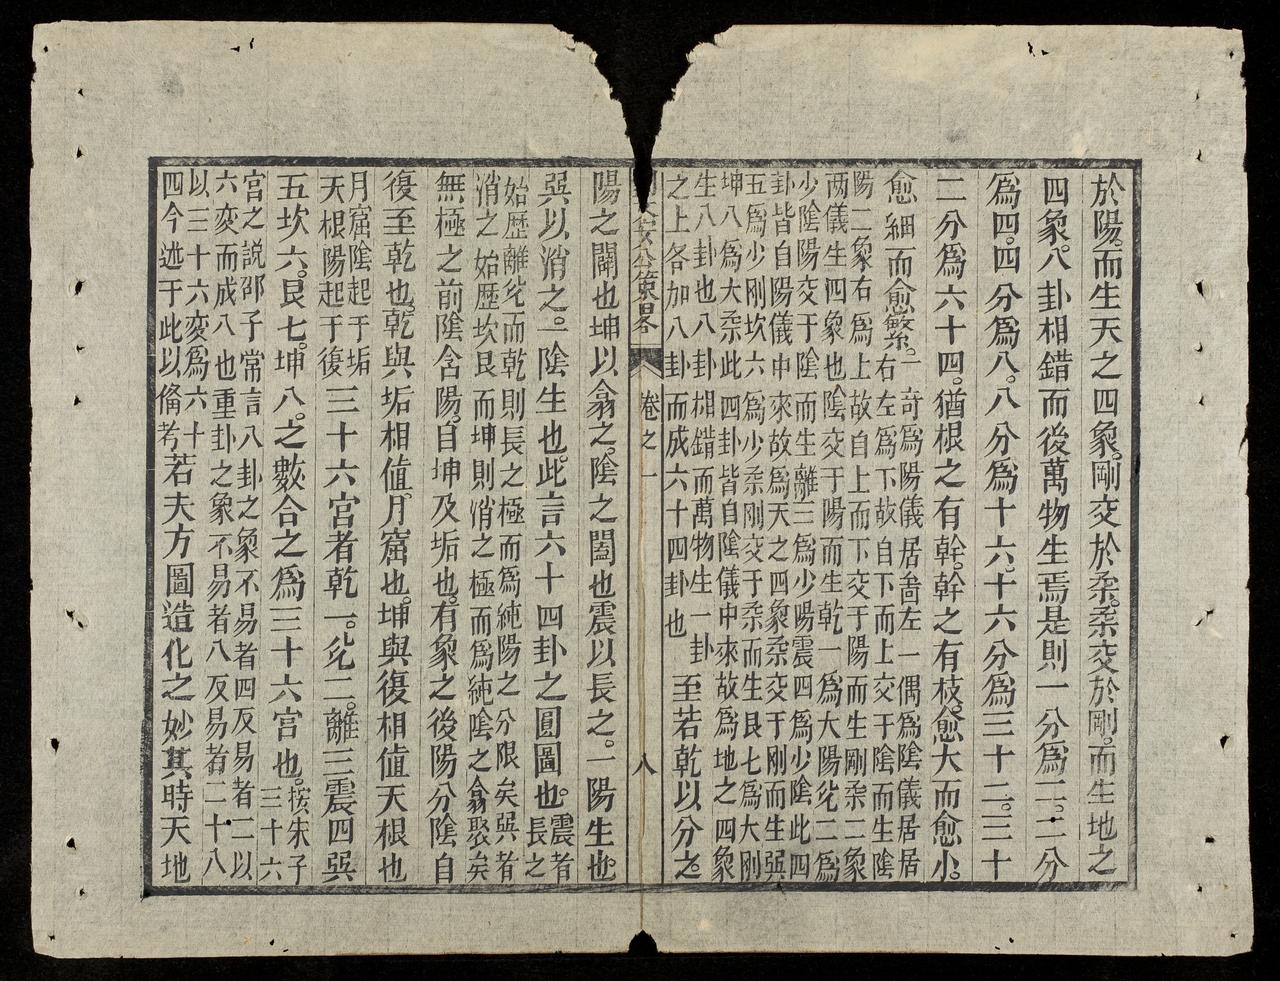 於陽。而生天之四象。剛交於柔。柔交於剛。而生地之
四象。八卦相錯而後萬物生焉是則一分為二。二分
為四。四分為八。八分為十六。十六分為三十二。三十
二分為六十四。猶根之有幹。幹之有枝。愈大而愈小。
愈細而愈繁。一奇為陽儀居左一偶為陰儀居
右左為下故自下而上交于陰而生陰
陽二象右為上故自上而下交于陽而生剛柔二象
两儀生四象也陰交于陽而生乾一為大陽兊二為
少陰陽交于陰而生離三為少陽震四為少陰此四
卦皆自陽儀中來故為天之四象柔交于刚而生巽
五為少刚坎六為少柔刚交于柔而生艮七為大刚
坤八為大柔此四卦皆自陰儀中來故為地之四象
生八卦也八卦相錯而萬物生一卦
之上各加八卦而成六十四卦也至若乾以分之
公策畧 卷之一 八
陽之闢也坤以翕之。陰之闔也震以長之。一陽生也
巽以消之。一陰生也。此言六十四卦之圓圖也。震者
長之
始歷離兊而乾則長之極而為純陽之分限矣巽者
消之始歷坎艮而坤則消之極而為純陰之翕聚矣
無極之前陰含陽。自坤及垢也。有象之後陽分陰自
復至乾也。乾與垢相值。月窟也。坤與復相值天根也
月窟陰起于垢
天根陽起于復三十六宮者乾一。兊二。離三震四巽
五坎六。艮七。坤八。之數合之為三十六宮也。按朱子
三十六
宮之說邵子常言八卦之象不易者四反易者二以
六变而成八也重卦之象不易者八反易者二十八
以三十六变為六十
四今述于此以俻考若夫方圖造化之妙其時天地